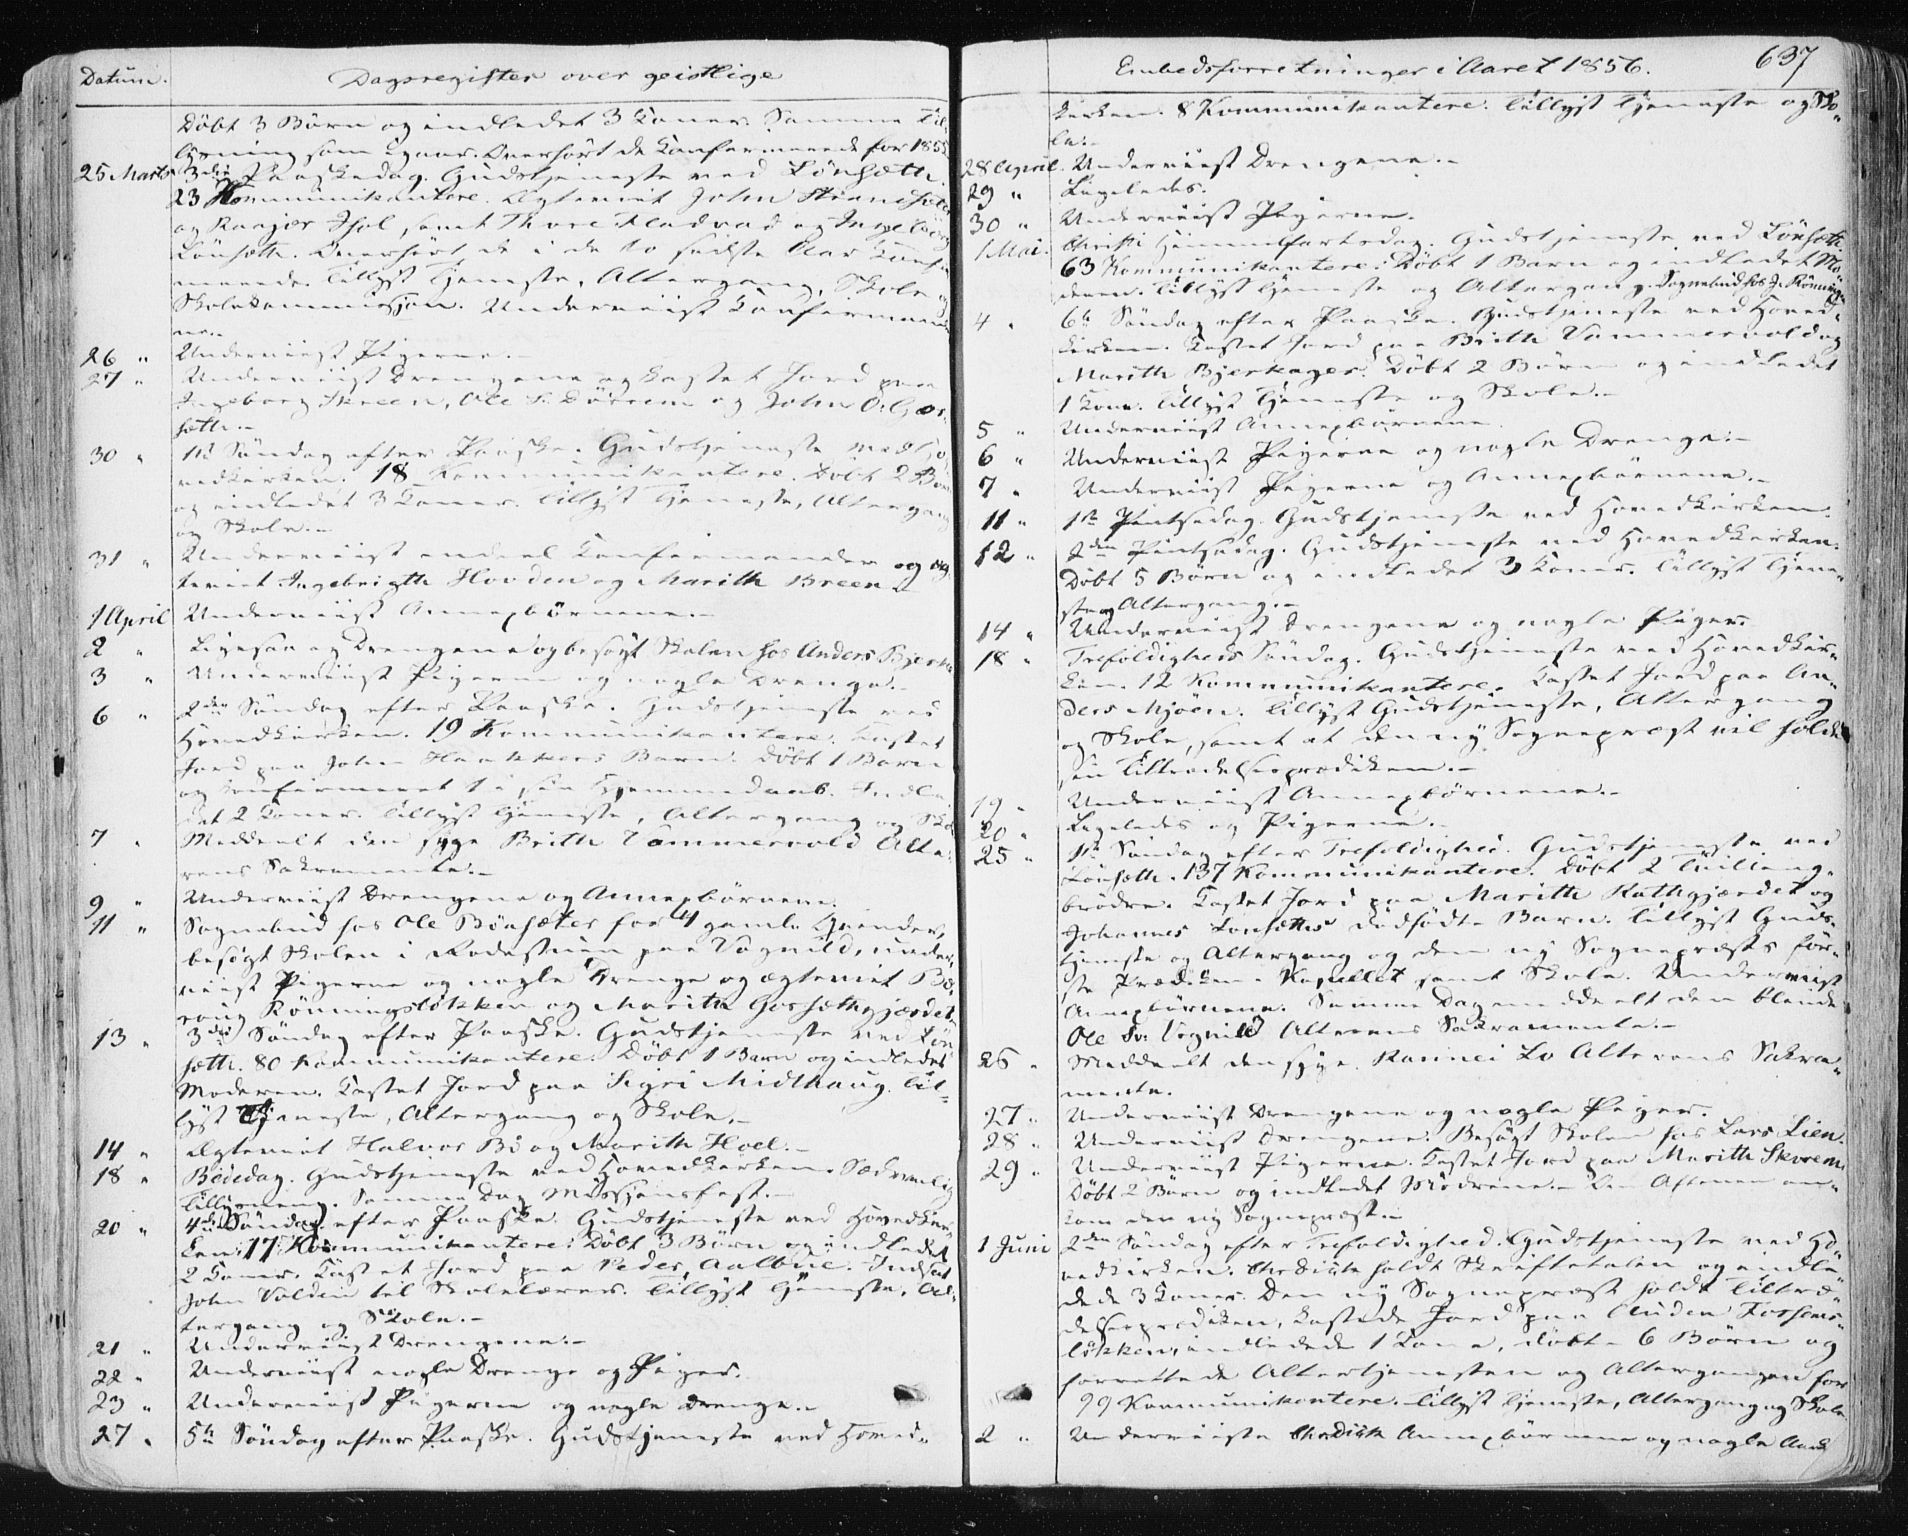 Datum. Dagsregister over geistlige
Döbt 3 Börn og indledet 3 Koner. Samme Til-
lysning som igaar. Overhört de Konfirmerede for 1855
25 Marts 3die Paaskedag. Gudstjeneste ved Lönsæth.
23 Kommunikantere. Egteviet John Strand
og Ranger Hol, samt Thore Kladvad og Ingeborg
Lönsæth. Overhört de i de to sidste Aar Konfir-
merede. Tillyst Tjeneste, Altergang, Skole og
Skolekommission. Underviist Konfirmanderne.
26 " Underviist Pigerne.
27 " Underviist Drengene og kastet Jord paa
Ingeborg Skreen, Ole S. Dörrem og John O. Gor-
sæth.-
30 " 1ste Söndag efter Paaske. Gudstjeneste ved Ho-
vedkirken. 18 Kommunikantere. Döbt 2 Börn
og indledet 3 Koner. Tillyst Tjeneste, Altergang
og Skole.-
31 " Underviist endeel Konfirmander og eg-
teviet Ingebrigth Hovden og Marith Breen.-
1 April Underviist Annexbörnene.-
2 " Ligesaa og Drengene og besögt Skolen hos Anders Bjerke
3 " Underviist Pigerne og nogle Drenge.-
6 " 2den Söndag efter Paaske. Gudstjeneste ved
Hovedkirken. 19 Kommunikantere. Kastet
Jord paa John Haakkens Barn. Döbt 1 Barn
og konfirmeret 1 i sin Hjemmedaab. Indle-
det 2 Koner. Tillyst Tjeneste, Altergang og Skole
7 " Meddeelt den syge Brith Vammervold Alte-
rens Sakramente.-
9 " Underviist Drengene og Annexbörnene.
11 " Sognebud hos Ole Bönsæter for 4 gamle Qvinder,
besögt Skolen i Rodestuen paa Vognild, under-
viist Pigerne og nogle Drenge og egteviet
Rönningslökken og Marith Gorsethgjærdet.
13 " 3die Söndag efter Paaske. Gudstjeneste ved Lön-
sæth. 80 Kommunikantere. Döbt 1 Barn og indledet
Moderen. Kastet Jord paa Sigri Midthaug. Til-
lyst Tjeneste, Altergang og Skole.-
14 " Egteviet Halvor Bö og Marith Hoel.-
18 " Bededag. Gudstjeneste ved Hovedkirken. Sædvanlig
Tillysning. Samme Dag Missionsfest.-
20 " 4de Söndag efter Paaske. Gudstjeneste ved Hovedkir-
ken. 17 Kommunikantere. Döbt 3 Börn og indledet
2 Koner. Kastet Jord paa Peder Aalbue. Indsat
John Volden til Skolelærer. Tillyst Tjeneste, Al-
tergang og Skole.-
21 " Underviist Drengene.-
22 " Underviist nogle Drenge og Piger.
23 " Underviist Pigerne og nogle Drenge.-
27 " 5te Söndag efter Paaske. Gudstjeneste ved Hoved-
Embedsforretninger i Aaret 1856. 637
kirken. 8 Kommunikantere. Tillyst Tjeneste og Sko-
le.-
28 April. Underviist Drengene.-
29 " Ligeledes.
30 " Underviist Pigerne.
1 Mai. Christi Himmelfartsdag. Gudstjeneste ved Lönsæth.
63 Kommunikantere. Döbt 1 Barn og indledet Mo-
deren. Tillyst Tjeneste og Altergang. Sognebud hos J. Rönningen
4 " 6te Söndag efter Paaske. Gudstjeneste ved Hoved-
kirken. Kastet Jord paa Brith Vammervold og
Marith Bjerkager. Döbt 2 Börn og indledet
1 Kone. Tillyst Tjeneste og Skole.-
5 " Underviist Annexbörnene.
6 " Underviist Pigerne og nogle Drenge.-
7 " Underviist Pigerne og Annexbörnene.-
11 " 1ste Pintsedag. Gudstjeneste ved Hovedkirken.
12 " 2den Pintsedag. Gudstjeneste ved Hovedkirken.
Döbt 5 Börn og indledet 3 Koner. Tillyst Tjene-
ste og Altergang.-
14 " Underviist Drengene og nogle Piger.
18 " Trefoldigheds Söndag. Gudstjeneste ved Hovedkir-
ken. 12 Kommunikantere. Kastet Jord paa An-
ders Mjöen. Tillyst Gudstjeneste, Altergang
og Skole, samt at den ny Sognepræst vil holde
sin Tiltrædelsesprædiken.-
19 " Underviist Annexbörnene.-
20 " Ligeledes og Pigerne.-
25 " 1ste Söndag efter Trefoldighed. Gudstjeneste ved
Lönsæth. 137 Kommunikantere. Döbt 2 Tvilling-
brödre. Kastet Jord paa Marith Kathgjærdet og
Johannes Lonsæths dödfödte Barn. Tillyst Guds-
tjeneste og Altergang og den ny Sognepræsts för-
ste Prædiken i Kapellet samt Skole. Underviist
Annexbörnene. Samme Dag meddeelt den blinde
Ole Sv. Vognild Alterens Sakramente.-
26 " Meddeelt den syge Karinei Lo Alterens Sakra-
mente.
27 " Underviist Drengene og nogle Piger.
28 " Underviist Drengene. Besögt Skolen hos Lars Lien.
29 " Underviist Pigerne. Kastet Jord paa Marith Skorem.
Döbt 2 Börn og indledet Mödrene.- Om Aftenen an-
kom den ny Sognepræst.-
1 Juni 2den Söndag efter Trefoldighed. Gudstjeneste ved Ho-
vedkirken. holdt Skriftetalen og indle-
dede 3 Koner. Den ny Sognepræst holdt Tiltræ-
delsesprædiken, kastede Jord paa Auden Fossems-
lökken, indledede 1 Kone, döbte 6 Börn og
forrettede Altertjenesten og Altergangen for
99 Kommunikantere. Tillyst Tjeneste, Altergang og Skole
2 " Underviiste Annexbörnene og nogle